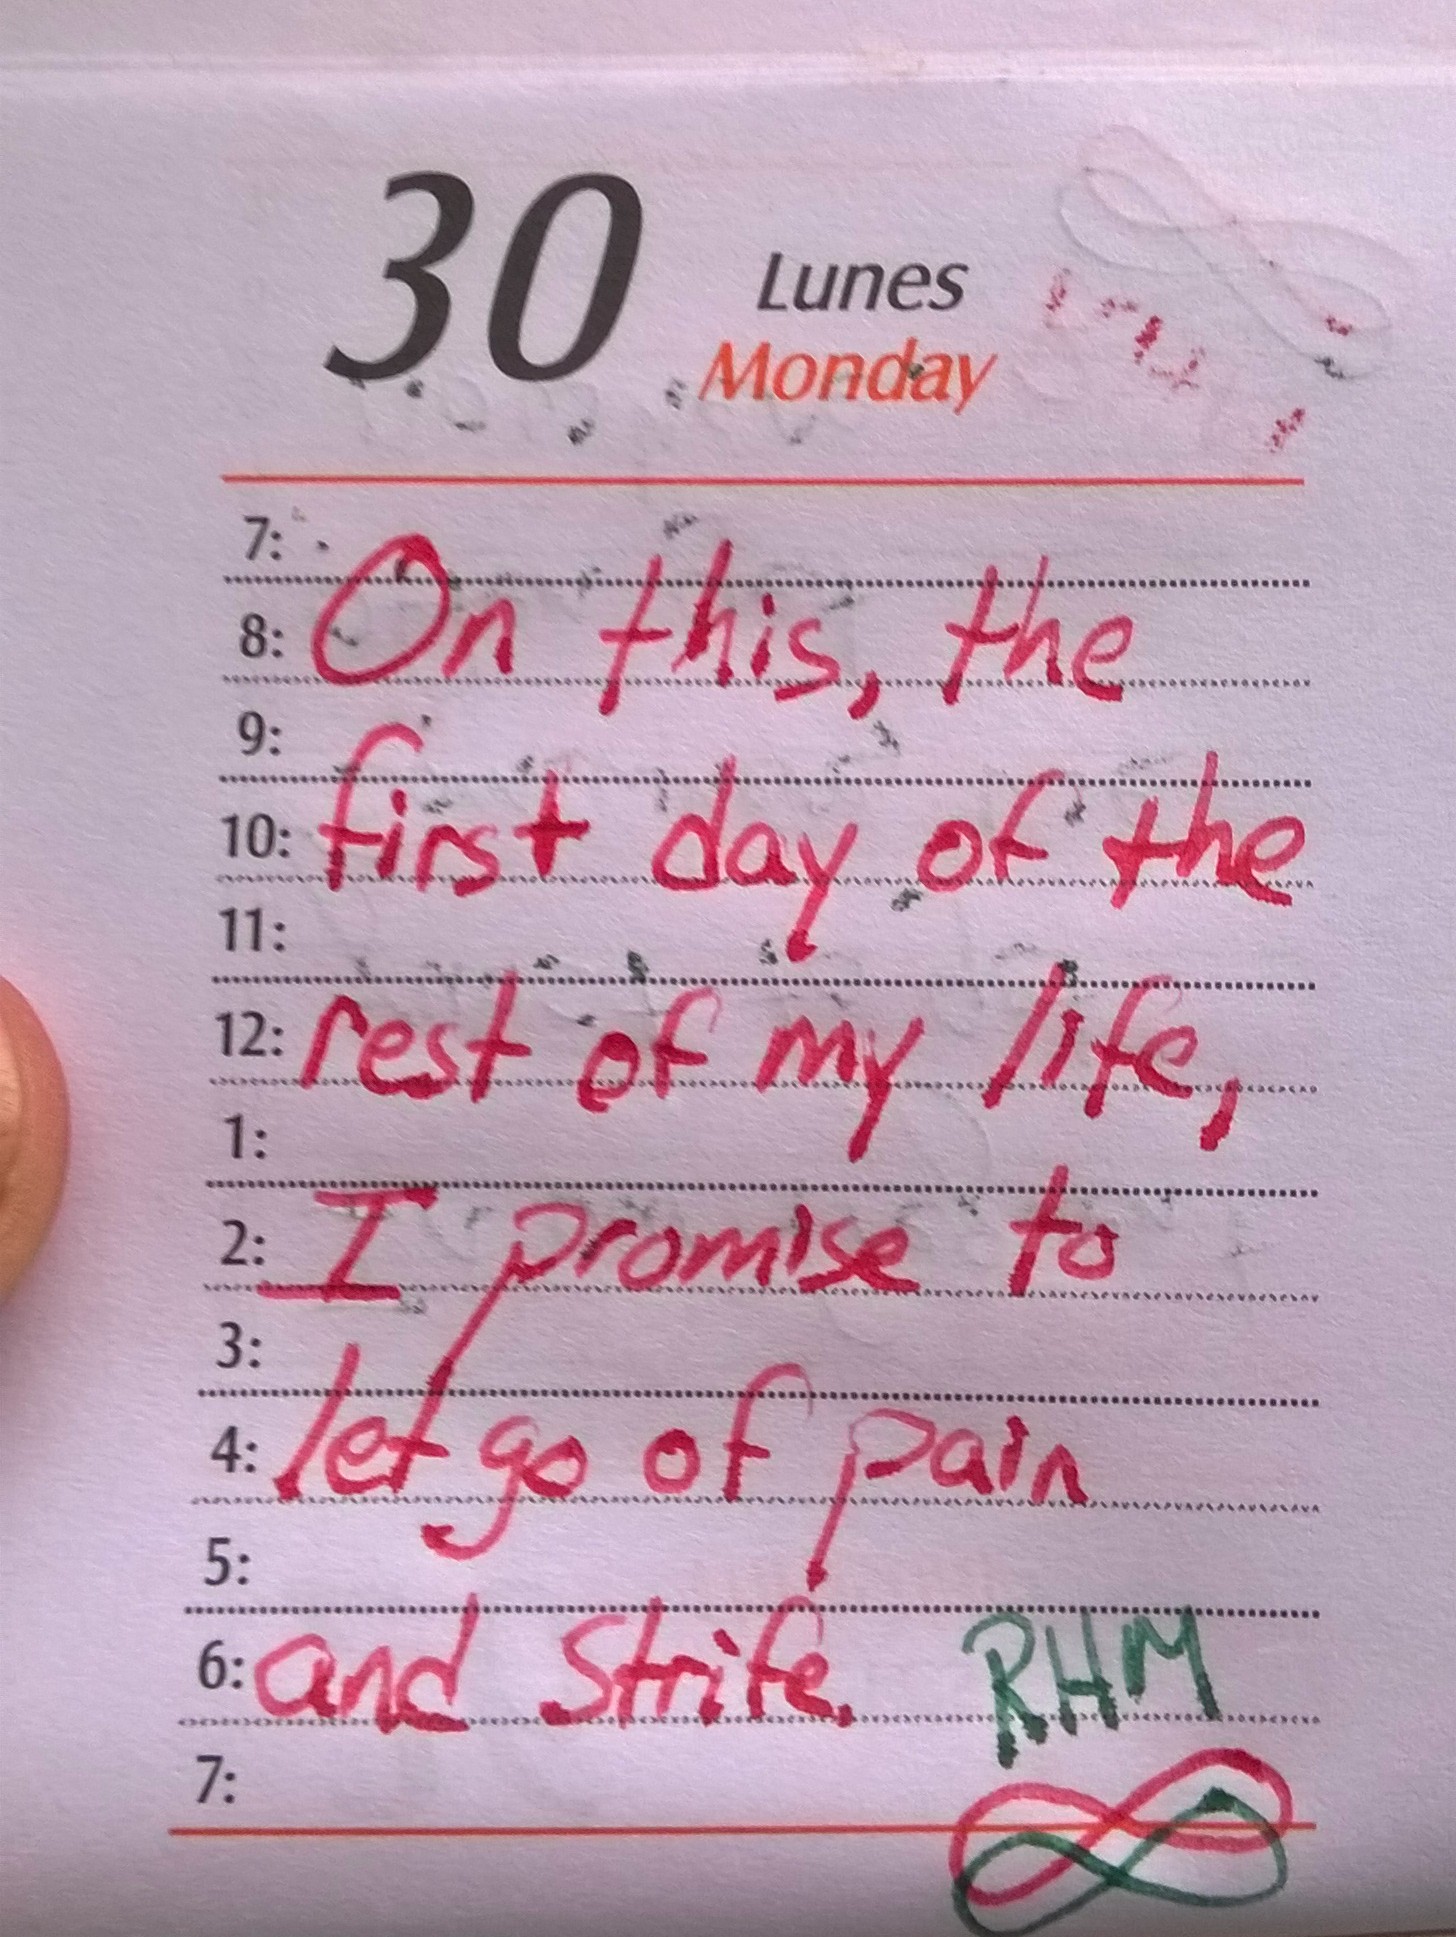 30 Lunes
Monday
7:
8: On this, the
9:
10: first day of the
11:
12: rest of my life,
1:
2: I promise to
3:
4: let go of pain
5:
6: and strife. RHM
7: